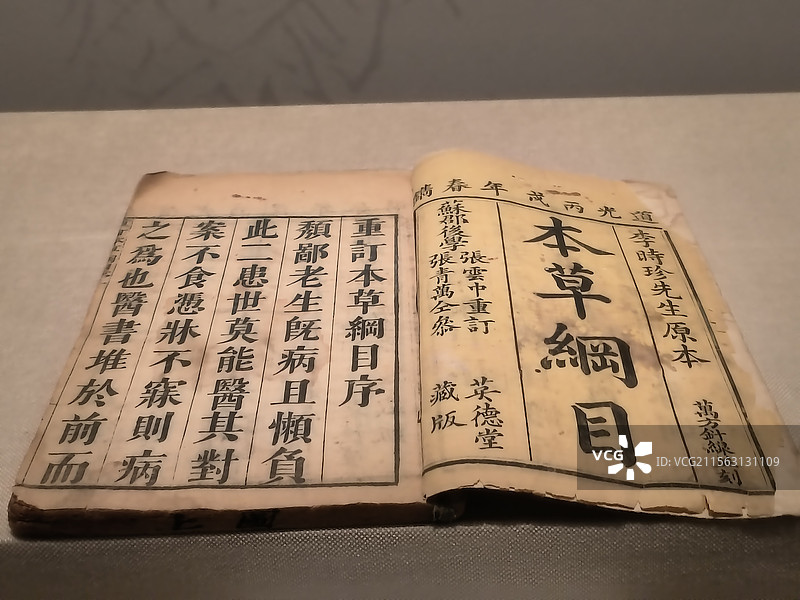 道光丙戌年春鐫
李時珍先生原本
萬方針線 刻
本草綱目
蘇郡後學
張雲中重訂
張青萬仝叅
英德堂
藏版
重訂本草綱目序
頹鄙老生旣病且懶負
此二患世莫能醫其對
案不食憑牀不寐則病
之爲也醫書堆於前而
VCG
ID: VCG211563131109